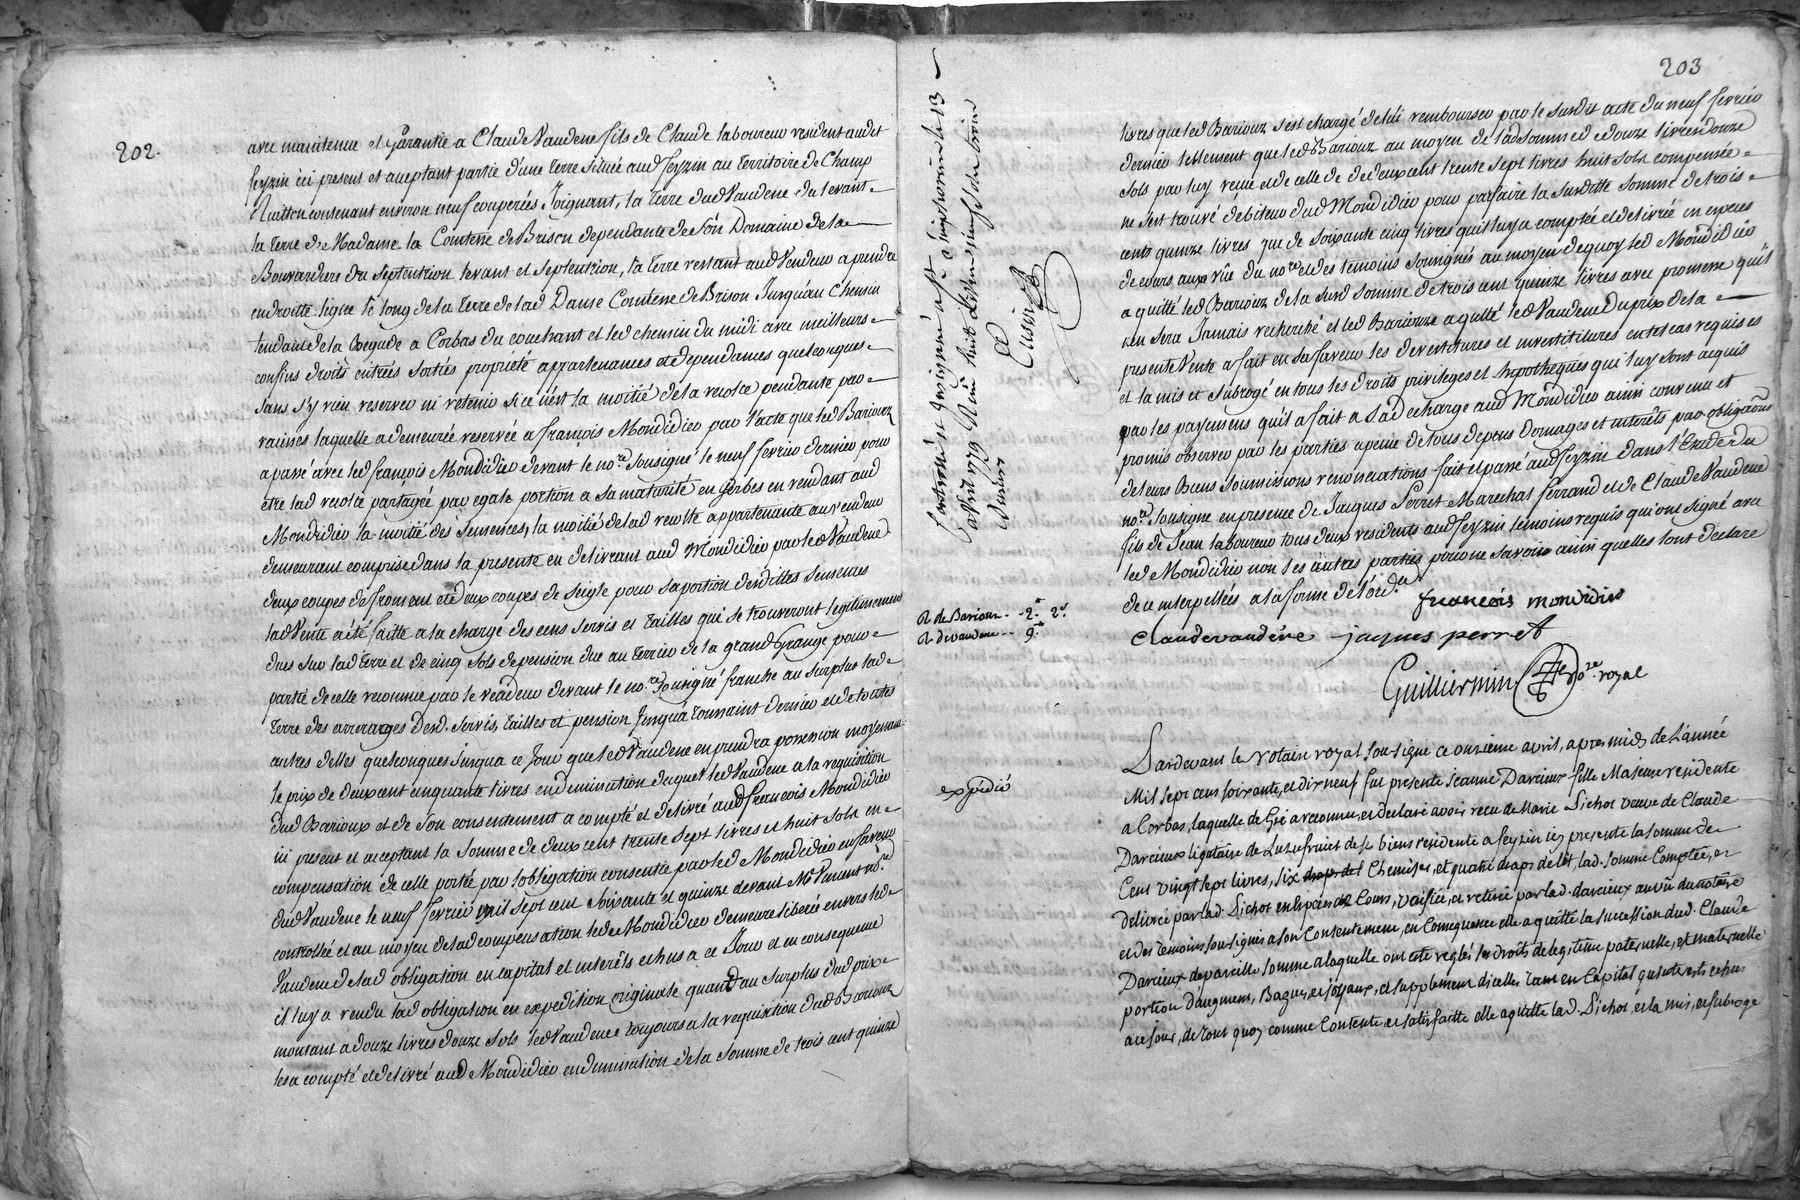 202.
avec maintenue et Garantie a Claude Vaudene fils de Claude laboureur resident audit
feyzin ici present et aceptant partie d'une terre située aud feyzin au territoire de Champ
contenant environ neuf couperées Joignant, la terre dud Vaudene du levant
la terre de Madame la Comtesse de Brison dependante de son Domaine de la
Bouvandiere du Septentrion levant et Septentrion, la terre restant aud Vendeur a prendre
en droitte ligne le long de la terre de lad Dame Comtesse de Brison Jusqu'au Chemin
tendant de la Begude a Corbas du couchant et led chemin du midi avec meilleurs
confins droits entrées sorties propriété appartenances et dependances quelconques
sans s'y rien reserver ni retenir si ce n'est la moitié de la recolte pendante par
racines laquelle a demeurée reservée a françois Mondidier par l'acte que led Barioux
a passé avec led françois Mondidier devant le no.re Sousigné le neuf fevrier dernier pour
etre lad recolte partagée par egale portion a sa maturité en gerbes en rendant aud
Mondidier la moitié des semences, la moitié de lad recolte appartenante au vendeur
demeurant comprise dans la presente en delivrant aud Mondidier par led Vaudene
deux coupes de froment et deux coupes de seigle pour sa portion desdittes semences
lad Vente a été faitte a la charge des cens servis et tailles qui se trouveront legitimement
dus sur lad terre et de cinq sols de pension due au terrier de la grand Grange pour
partie de celle reconnue par le vendeur devant le no.re Sousigné franche au surplus lad
terre des arrerages desd. servis, tailles et pension Jusqu'a toussaint dernier et de toutes
autres delles quelconques Jusqua ce Jour que led Vaudene en prendra possession moyennant
le prix de deux cent cinquante livres en diminution duquel led Vaudene a la requisition
dud Barioux et de son consentement a compté et delivré aud françois Mondidier
ici present et acceptant la somme de deux cent trente sept livres et huit sols en
compensation de celle portée par l'obligation consentie par led Mondidier en faveur
dud Vaudene le neuf fevrier mil sept cent soixante et quinze devant Me Vincent no.re
controllée et au moyen de lad compensation led Mondidier demeure liberé envers led
Vaudene de lad obligation en capital et interêts echus a ce Jour et en consequence
il luy a rendu lad obligation en expedition originale quant au surplus dud prix
montant a douze livres douze sols led Vaudene toujours a la requisition dud Barioux
les a compté et delivré aud Mondidier en diminution de la somme de trois cent quinze
203
livres que led Barioux s'est chargé de lui rembourser par le surdit acte du neuf fevrier
dernier tellement que led Barioux au moyen de lad somme de douze livres douze
sols par luy reçue et de celle de deux cent trente sept livres huit sols compensée
ne s'est trouvé debiteur dud Mondidier pour parfaire la surditte somme de trois
cents quinze livres que de soixante cinq livres qu'il luy a comptée et delivrée en especes
de cours aux vüe du no.re et des temoins sousignés au moyen de quoy led Mondidier
a quitté led Barioux de la surd somme de trois cent quinze livres avec promesse qu'il
n'en sera Jamais recherché et led Barioux a quitté led Vaudene du prix de la
presente Vente a fait en sa faveur les devestitures et investitures en tel cas requises
et la mis et subrogé en tous les droits privileges et hipotheques qui luy sont acquis
par les payemens qu'il a fait a sad decharge aud Mondidier ainsi convenu et
promis observer par les parties a peine de tous depens domages et interêts par obligations
de leurs biens soumissions renonciations fait et passé aud feyzin dans l'Etude du
no.re Sousigné en presence de Jacques Perret Marechal ferrand et de Claude Vaudene
fils de Jean laboureur tous deux residents aud feyzin temoins requis qui ont signé avec
led Mondidier non les autres parties pour ne savoir ainsi quelles l'ont declaré
de ce interpellées a la forme de l'ord.ce
francois mondidier
claude vaudéne jaques perret
Guilliermin No.re royal
Controllé et
avril 1779
R de Barioux -- 2.# 2s
R de vaudene -- 9.#
expedié
Pardevant le Notaire royal sousigné ce onzieme avril, apres midy de L'année
Mil sept cens soixante, et dix neuf fut presente Jeanne Darcieux fille Majeure residente
a Corbas, laquelle de Gré a reconnu, et declaré avoir recu de Marie Pichot veuve de Claude
Darcieux ligataire de L'usufruict de ses biens residente a feyzin icy presente la somme de
Cent vingt sept livres, six Chemises, et quatre draps de lit, lad. somme Comptée, et
delivrée par lad. Pichot en Especes de Cours, veriffiée, et retirée par lad. darcieux au vû du notaire
et des temoins sousignés a son Contentement, en Consequence elle a quitté la succession dud. Claude
Darcieux de pareille somme a laquelle ont eté reglés les droits de legitime paternelle, et maternelle
portion d'augment, Bagues, et Joyaux, et supplement dicelles tant en Capital qu'interets echus
a ce Jour, de tout quoy comme Contente et satisfaitte elle a quitté lad. Pichot, et la mis, et subrogé